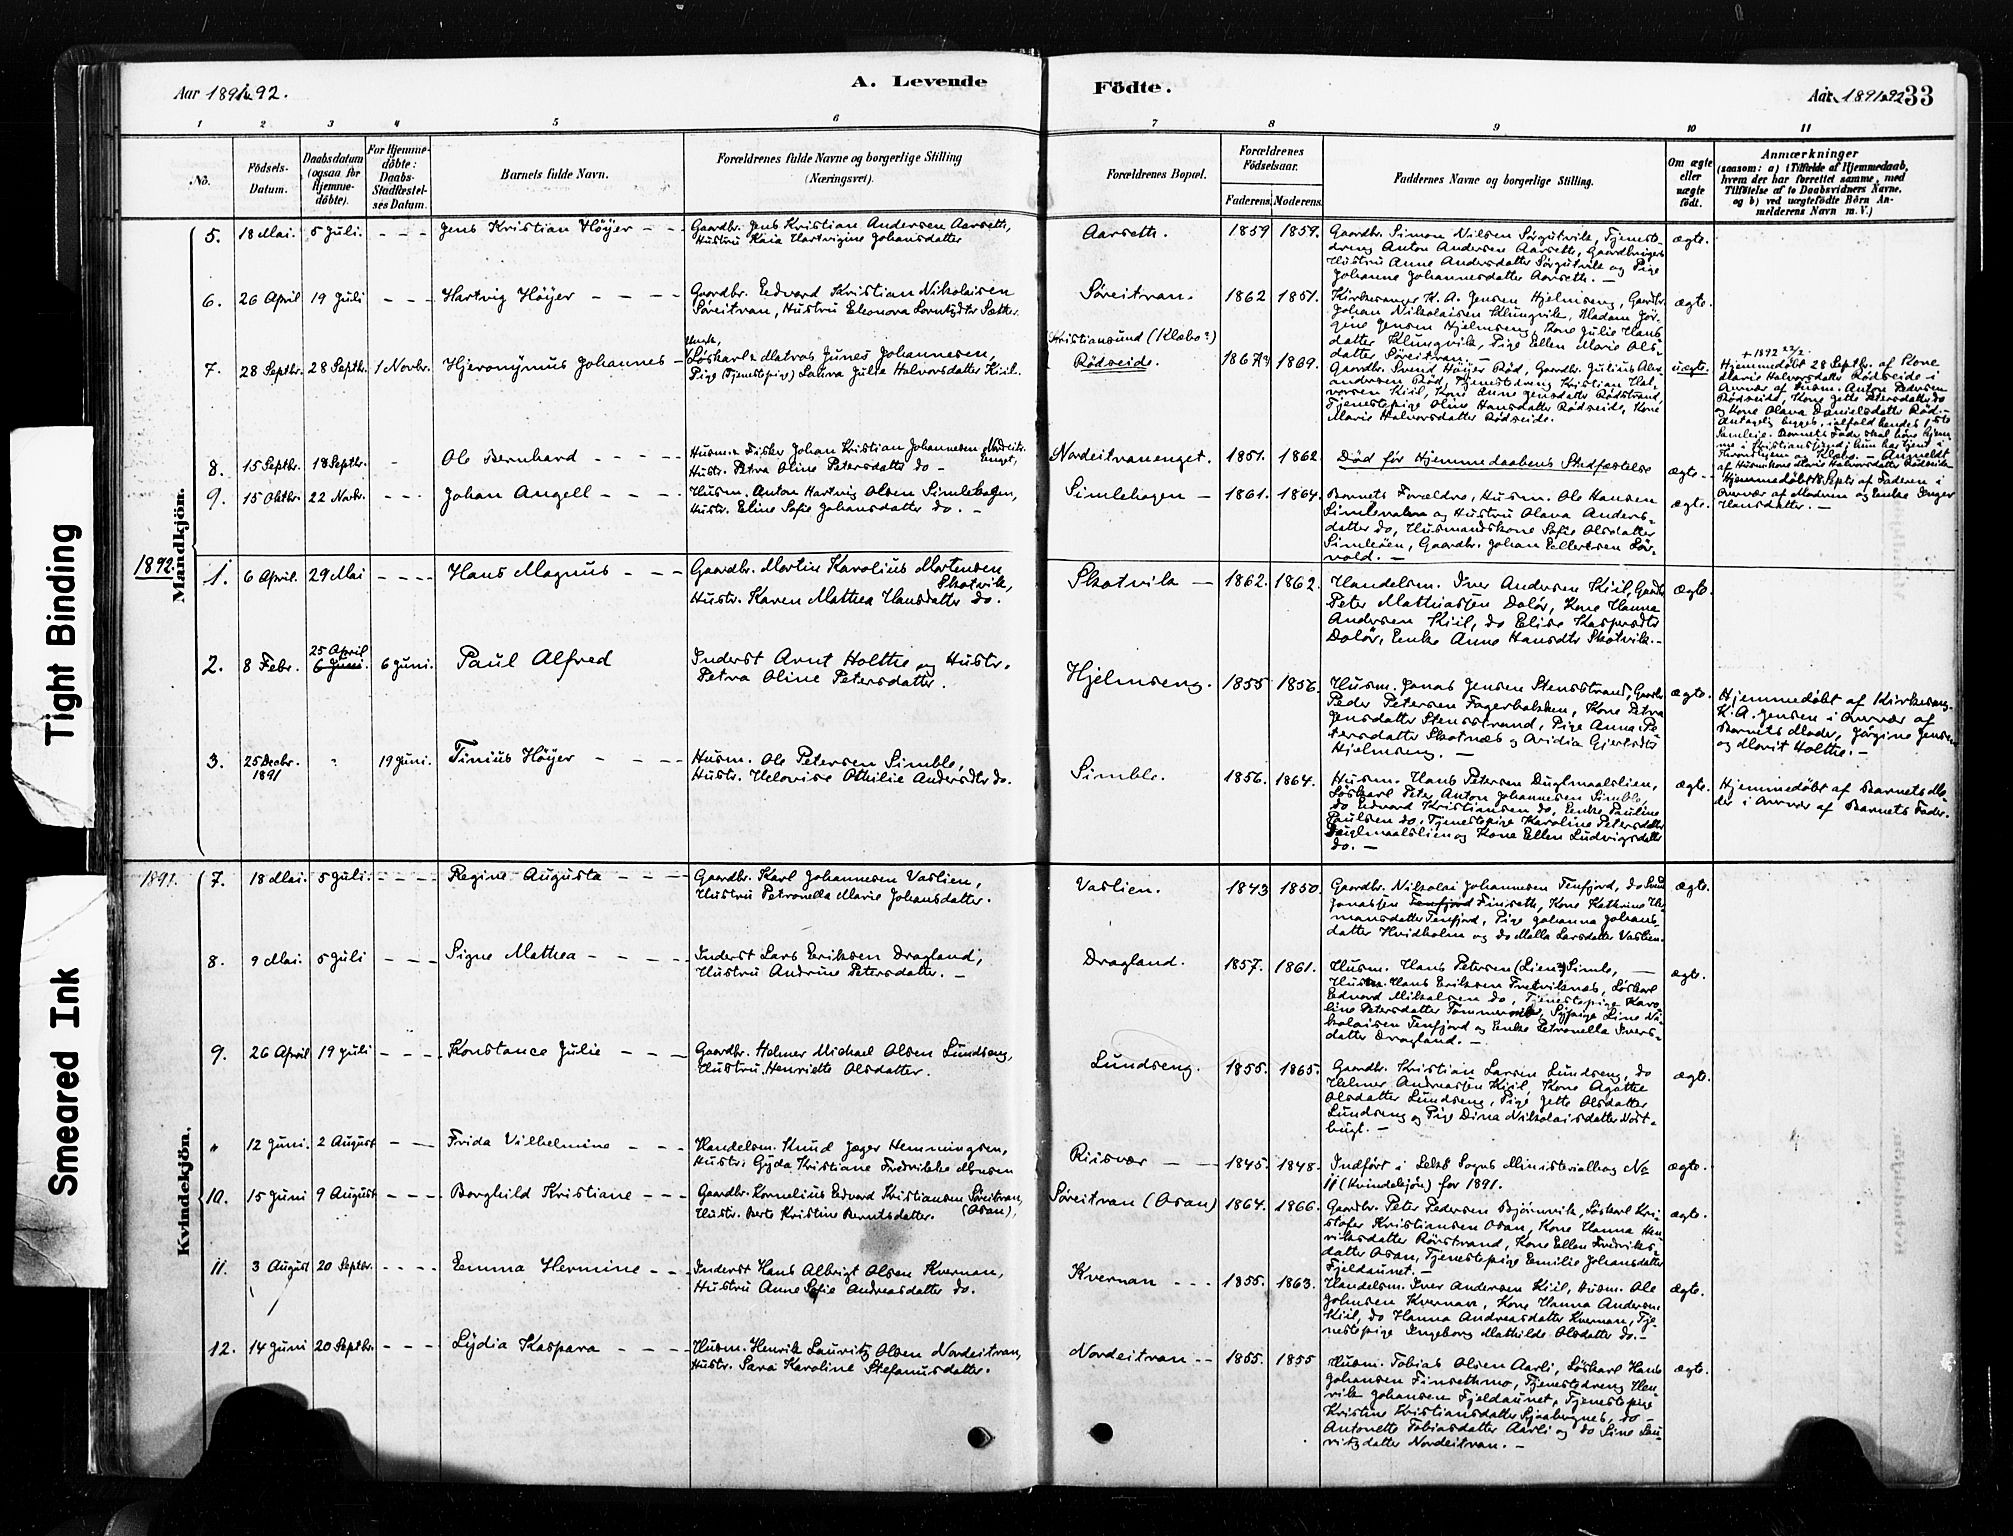 Aar 1891-92.
A. Levende
Födte.
Aar 1891-92 33
1 2 3 4 5 6 7 8 9 10 11
No.
Födsels-Datum.
Daabsdatum (ogsaa for Hjemme-döbte).
For Hjemme-döbte: Daabs-Stadfæstel-ses Datum.
Barnets fulde Navn.
Forældrenes fulde Navne og borgerlige Stilling (Næringsvei).
Forældrenes Bopæl.
Forældrenes Födselsaar.
Faderens. Moderens.
Faddernes Navne og borgerlige Stilling.
Om ægte eller uægte födt.
Anmærkninger
(saasom: a) i Tilfælde af Hjemmedaab, hvem der har forrettet samme, med Tilföielse af to Daabsvidners Navne, og b) ved uægtefödte Börn An-melderens Navn m. V.)
Tight Binding
Smeared Ink
Mandkjön.
5. 18 Mai. 5 Juli. - - - Jens Kristian Höyer - -
Gaardbr. Jens Kristian Andersen Aarseth,
Hustru Kaia Hartvigine Johansdatter
Aarseth. 1859 1859.
Gaardbr. Simon Nilsen Sørgutvik, Tjeneste-
dreng Anton Andersen Aarseth, Gaardbrugers
Hustru Anne Andersdatter Sørgutvik og Pige
Johanne Johannesdatter Aarseth. -
ægte.
6. 26 April 19 Juli - - - Hartvig Höyer - - - -
Gaardbr. Edvard Kristian Nikolaisen
Søreitran, Hustru Eleonora Lorntsdtr Sæther.
Søreitran. 1862 1851.
Kirkesanger K. A. Jensen Hjelmseng, Gaardbr.
Johan Nikolaisen Klungvik, Madam Jør-
gine Jensen Hjelmseng, Kone Julie Hans
datter Klungvik, Pige Ellen Marie Ols-
datter Søreitran. -
ægte.
7. 28 Septbr. 28 Septb. 1 Novbr. Hjeronymus Johannes -
Løskarl & Matros Junes Johannesen,
Pige (Tjenestepige) Laura Julia Halvorsdatter Kiil.
Kristiansund (Klæbo?)
Rødseide. 1867? 1869.
Gaardbr. Svend Höyer Rød, Gaardbr. Julius Alex-
andersen Rød, Tjenestedreng Kristian Hal-
vorsen Kiil, Kone Anne Jensdatter Rødstrand,
Tjenestepige Oline Hansdatter Rødseide, Kone
Marie Halvorsdatter Rødseide.
uægte.
+ 1892 22/2.
Hjemmedöbt 28 Septbr. af Kone
Marie Halvorsdatter Rødseide i
Overvær af Husm. Anton Pedersen
Rødseide, Kone Jette Petersdatter do
og Kone Olava Danielsdatter Rød. -
8. 15 Septbr. 18 Septbr. - Ole Bernhard - - - -
Husm. & Fisker Johan Kristian Johannesen Nordeitr-
anenget,
Hustr. Petra Oline Petersdatter do -
Nordeitranenget. 1851. 1862.
Død før Hjemmedaabens Stadfæstelse
ægte -
Hjemmedöbt 18 Septbr. af Faderen i
Overvær af Moderen og Enke Inger
Hansdatter. -
9. 15 Oktbr. 22 Novbr. - - - Johan Angell - - -
Husm. Anton Hartvig Olsen Simlehagen,
Hustr. Eline Sofie Johansdatter do. -
Simlehagen - 1861. 1864.
Barnets Forældre, Husm. Ole Hansen
Simlenakn og Hustru Olava Anders-
datter do, Husmandskone Sofie Olsdatter
Simleöen, Gaardbr. Johan Ellertsen Sør-
vold. -
ægte.
1892.
1. 6 April. 29 Mai - - - - Hans Magnus - - -
Gaardbr. Martin Karolius Mortensen
Skotvik,
Hustr. Karen Mathea Hansdatter do.
Skotvik - 1862. 1862.
Handelsm. Iver Andersen Kiil, Gaardb.
Peter Mathiassen Dolör, Kone Hanna
Andersen Kiil, do Elise Kaspersdtr
Dolör, Enke Anne Hansdtr Skotvik. -
ægte.
2. 8 Febr. 25 April 6 Juni. 6 Juni. Paul Alfred
Inderst Arnt Holthe og Hustr.
Petra Oline Petersdatter.
Hjelmseng. 1855 1856.
Husm. Jonas Jensen Stensstrand, Gaardbr
Peder Petersen Fagerbakken, Kone Petra
Jensdatter Stensstrand, Pige Anna Pe-
tersdatter Skotnæs og Ovidia Gjertsdtr
Hjelmseng. -
ægte.
Hjemmedöbt af Kirkesang.
K. A. Jensen i Overvær af
Barnets Moder, Jørgine Jensen
og Marit Holthe. -
3. 25 Decbr. 1891 " 19 Juni. Tinius Höyer - - - -
Husm. Ole Petersen Simble,
Hustr. Helovise Othilie Andersdtr do.
Simble. 1856. 1864.
Husm. Hans Petersen Duglmaalslien,
Løskarl Peter Anton Johannesen Simble,
do Edvard Kristiansen do, Enke Pauline
Paulsen do, Tjenestepige Karoline Petersdatter
Duglmaalslien og Kone Ellen Ludvigsdatter
do. -
ægte.
Hjemmedöbt af Barnets Mo-
der i Overvær af Barnets Fader.
1891.
Kvindekjön.
7. 18 Mai. 5 Juli. - - - Regine Augusta - - - -
Gaardbr. Karl Johannesen Vaslien,
Hustru Petronella Marie Johansdatter.
Vaslien. 1843 1850.
Gaardbr. Nikolai Johannesen Tenfjord, do Knud
Jonassen Tenfjord Finseth, Kone Kathrine Her-
mansdatter Tenfjord, Pige Johanna Johans
datter Hvidholm og do Malla Larsdatter Vaslien.
ægte.
8. 9 Mai. 5 Juli - - - Signe Mathea - - - - -
Inderst Lars Eriksen Dragland,
Hustru Andrine Petersdatter. -
Dragland. 1857. 1861.
Husm. Hans Petersen (Lien?) Simle, -
Husm. Hans Eriksen Tretviknæs, Løskarl
Edvard Mikalsen do, Tjenestepige Karo-
line Petersdatter Tømmervik, Sypige Line Ni-
kolaisen Tenfjord og Enke Petronella Ivers-
datter Dragland. -
ægte.
9. 26 April 19 Juli - - - Konstance Julie - - -
Gaardbr. Helmer Michael Olsen Lundseng,
Hustru Henriette Olsdatter.
Lundseng. 1855. 1865.
Gaardbr. Kristian Larsen Lundseng, do
Helmer Andreassen Kiil, Kone Agathe
Olsdatter Lundseng, Pige Jette Olsdatter
Lundseng og Pige Dina Nikolaisdatter Nost-
bugt. -
ægte.
" 12 Juni. 2 August - - - Frida Vilhelmine - -
Handelsm. Knud Jæger Hemmingsen,
Hustr. Gyda Kristiane Fredrikke Monsen
Riisvær - - 1845. 1848.
Indført i Leka Sogns Ministerialbog No
11 (Kvindekjön) for 1891.
ægte.
10. 15 Juni 9 August - - - Borghild Kristiane - - -
Gaardbr. Kornelius Edvard Kristiansen Søreitran,
(Osan),
Hustr. Berte Kristine Berntsdatter.
Søreitran (Osan) 1864. 1866.
Gaardbr. Peter Pedersen Bjørnvik, Løskarl Kri-
stofer Kristiansen Osan, Kone Hanna Hen-
riksdatter Rörstrand, Kone Ellen Fredriks-
datter Osan, Tjenestepige Emilie Johansdatter
Fjeldaunet. -
ægte.
11. 3 August 20 Septbr. - - - - Emma Hermine - -
Inderst Hans Albrigt Olsen Kvernan,
Hustru Anne Sofie Andreasdatter do.
Kvernan - - - 1855. 1863.
Handelsm. Iver Andersen Kiil, Husm. Ole
Johnsen Kvernan, Kone Hanna Andersen
Kiil, do Hanna Andreasdatter Kvernan, Tje-
nestepige Ingeborg Mathilde Olsdatter do. -
ægte.
12. 14 Juni 20 Septbr. - - - - Lydia Kaspara - - -
Husm. Henrik Lauritz Olsen Nordeitran,
Hustr. Sara Karoline Stefanusdatter.
Nordeitran - - 1855. 1855
Husm. Tobias Olsen Aarli, Løskarl Hans
Johansen Finsethmo, Tjenestedreng Hen-
rik Johansen Fjeldaunet, Tjenestepige
Kristine Kristiansdatter Sjaabergnes, do -
Antonette Tobiasdatter Aarli og do Line Lau-
ritzdatter Nordeitran. -
ægte.